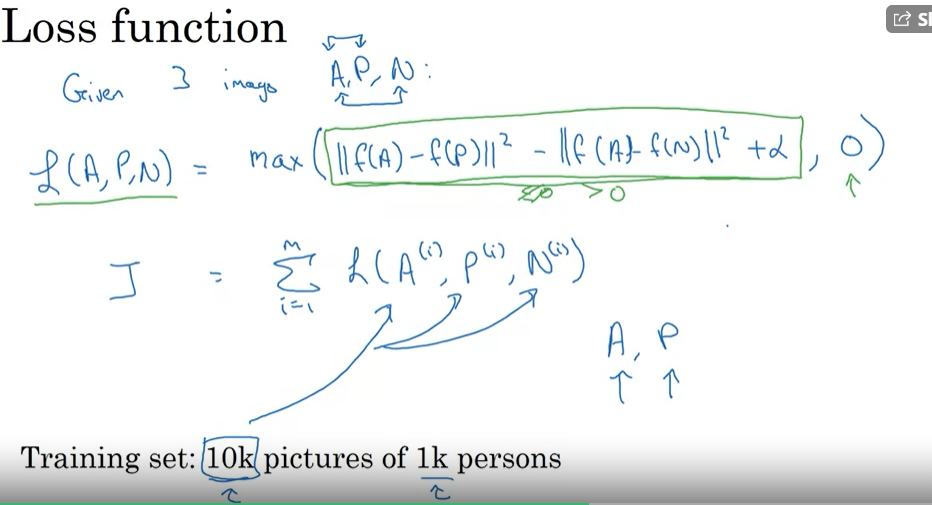 Loss function
SI
Given 3 images A, P, N:
L(A, P, N) = max(||f(A) - f(P)||² - ||f(A) - f(N)||² + α, 0)
≤0 >0
J = Σ_{i=1}^{m} L(A^(i), P^(i), N^(i))
A, P
Training set: 10k pictures of 1k persons